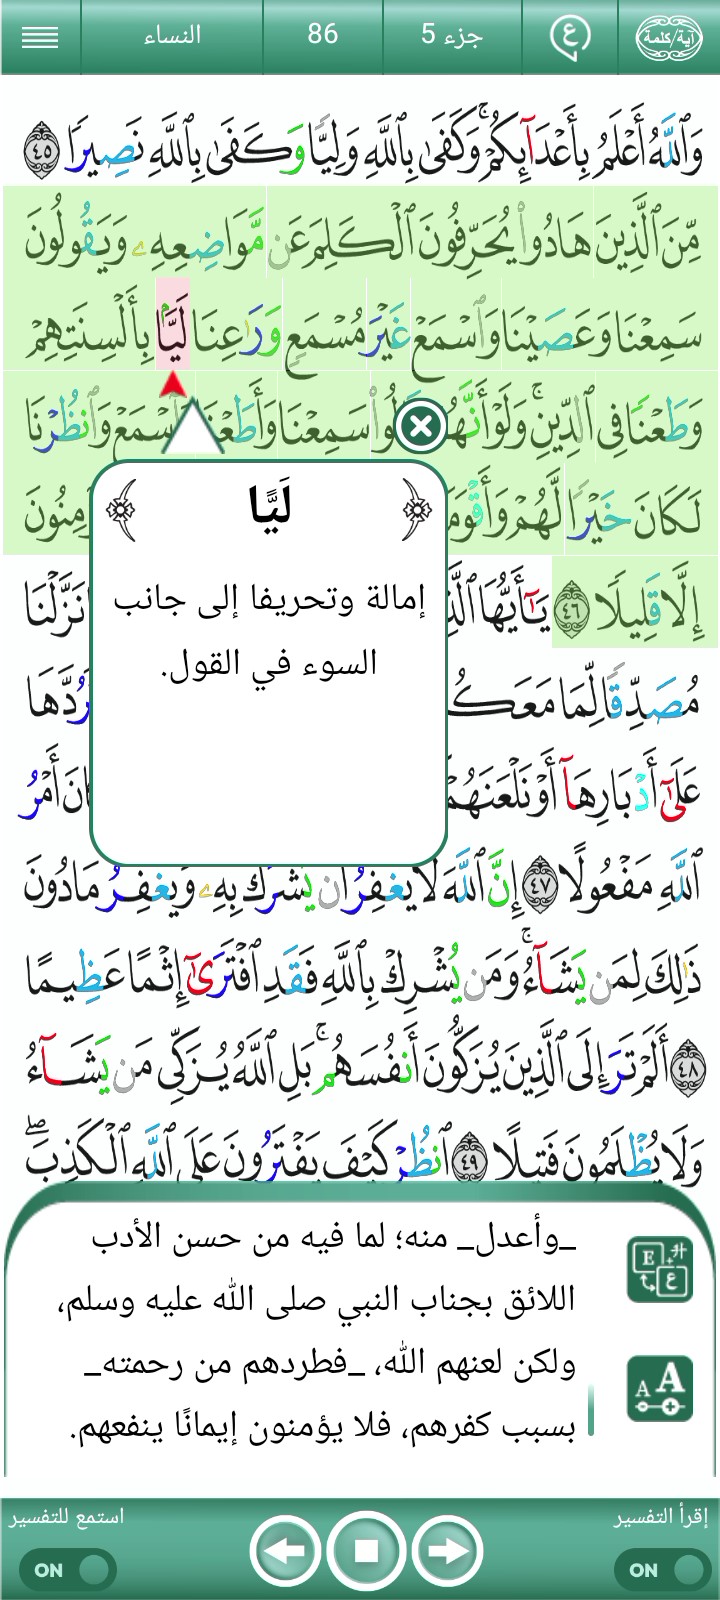 آية/كلمة
ع
جزء 5
86
النساء
وَٱللَّهُ أَعْلَمُ بِأَعْدَآئِكُمْ ۚ وَكَفَىٰ بِٱللَّهِ وَلِيًّا وَكَفَىٰ بِٱللَّهِ نَصِيرًا ٤٥
مِّنَ ٱلَّذِينَ هَادُوا۟ يُحَرِّفُونَ ٱلْكَلِمَ عَن مَّوَاضِعِهِۦ وَيَقُولُونَ
سَمِعْنَا وَعَصَيْنَا وَٱسْمَعْ غَيْرَ مُسْمَعٍ وَرَٰعِنَا لَيًّۢا بِأَلْسِنَتِهِمْ
وَطَعْنًا فِى ٱلدِّينِ ۚ وَلَوْ أَنَّهُمْ سَمِعْنَا وَأَطَعْنَا وَٱسْمَعْ وَٱنظُرْنَا
لَكَانَ خَيْرًا لَّهُمْ
إِلَّا قَلِيلًا ٤٦ يَـٰٓأَيُّهَا نَزَّلْنَا
مُصَدِّقًا لِّمَا مَعَكُم
عَلَىٰٓ أَدْبَارِهَآ أَوْ نَلْعَنَهُمْ أَمْرُ
ٱللَّهِ مَفْعُولًا ٤٧ إِنَّ ٱللَّهَ لَا يَغْفِرُ أَن يُشْرَكَ بِهِۦ وَيَغْفِرُ مَا دُونَ
ذَٰلِكَ لِمَن يَشَآءُ ۚ وَمَن يُشْرِكْ بِٱللَّهِ فَقَدِ ٱفْتَرَىٰٓ إِثْمًا عَظِيمًا
٤٨ أَلَمْ تَرَ إِلَى ٱلَّذِينَ يُزَكُّونَ أَنفُسَهُم ۚ بَلِ ٱللَّهُ يُزَكِّى مَن يَشَآءُ
وَلَا يُظْلَمُونَ فَتِيلًا ٤٩ ٱنظُرْ كَيْفَ يَفْتَرُونَ عَلَى ٱللَّهِ ٱلْكَذِبَ ۖ
﴿ لَيًّا ﴾
إمالة وتحريفا إلى جانب
السوء في القول.
_وأعدل_ منه؛ لما فيه من حسن الأدب
اللائق بجناب النبي صلى الله عليه وسلم،
ولكن لعنهم الله، _فطردهم من رحمته_
بسبب كفرهم، فلا يؤمنون إيمانًا ينفعهم.
E
ع
A A
إقرأ التفسير
استمع للتفسير
ON
ON